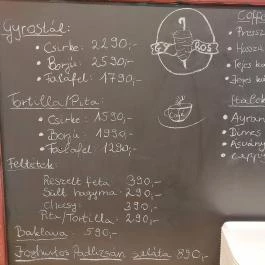 Gyrostál:
• Csirke: 2290,-
• Borjú: 2590,-
• Falafel: 1790,-
GY ROS
Tortilla/Pita:
• Csirke: 1590,-
• Borjú: 1990,-
• Falafel: 1290,-
Café
Feltétek:
Reszelt feta: 390,-
Sült hagyma: 290,-
390,-
Pita/Tortilla: 290,-
Baklava: 590,-
Joghurtos Padlizsán saláta 890,-
Coffe
• Pressz
•
• Tejes ká
• Jeges ká
Italok
• Ayran
•
• Ásvány
•